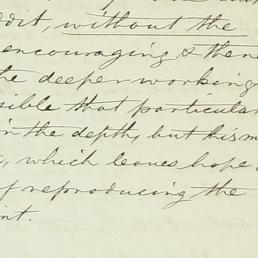 without the
encouraging & then
the deeper working
sible that particular
in the depth, but his m
, which leaves hope
of reproducing the
int.